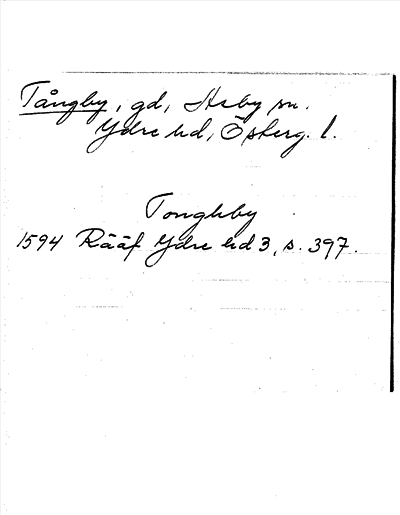 Tångby, gd, Asby sn.
Ydre hd, Österg. l.
Tonghby
1594 Rääf Ydre hd 3, s. 397.